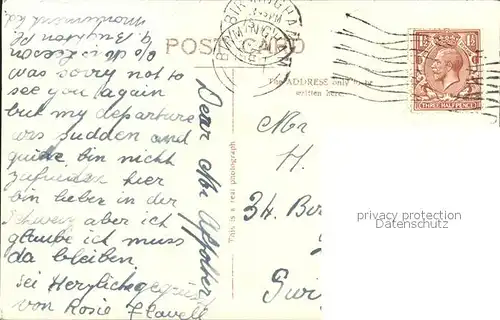 Monument Rd.
9, Brighton Pl.
c/o
was sorry not to
see you again
but my departure
was sudden and
bin nicht
zufrieden hier
bin lieber in der
Schweiz aber ich
glaube ich muss
da bleiben
sei Herzlich gegrüsst
von Rosie Flavell
Dear Mr
This is a real photograph
POST CARD
BIRMINGHAM
The ADDRESS only to be
written here.
THREE HALFPENCE
Mr
H.
34. Ber
privacy protection
Datenschutz